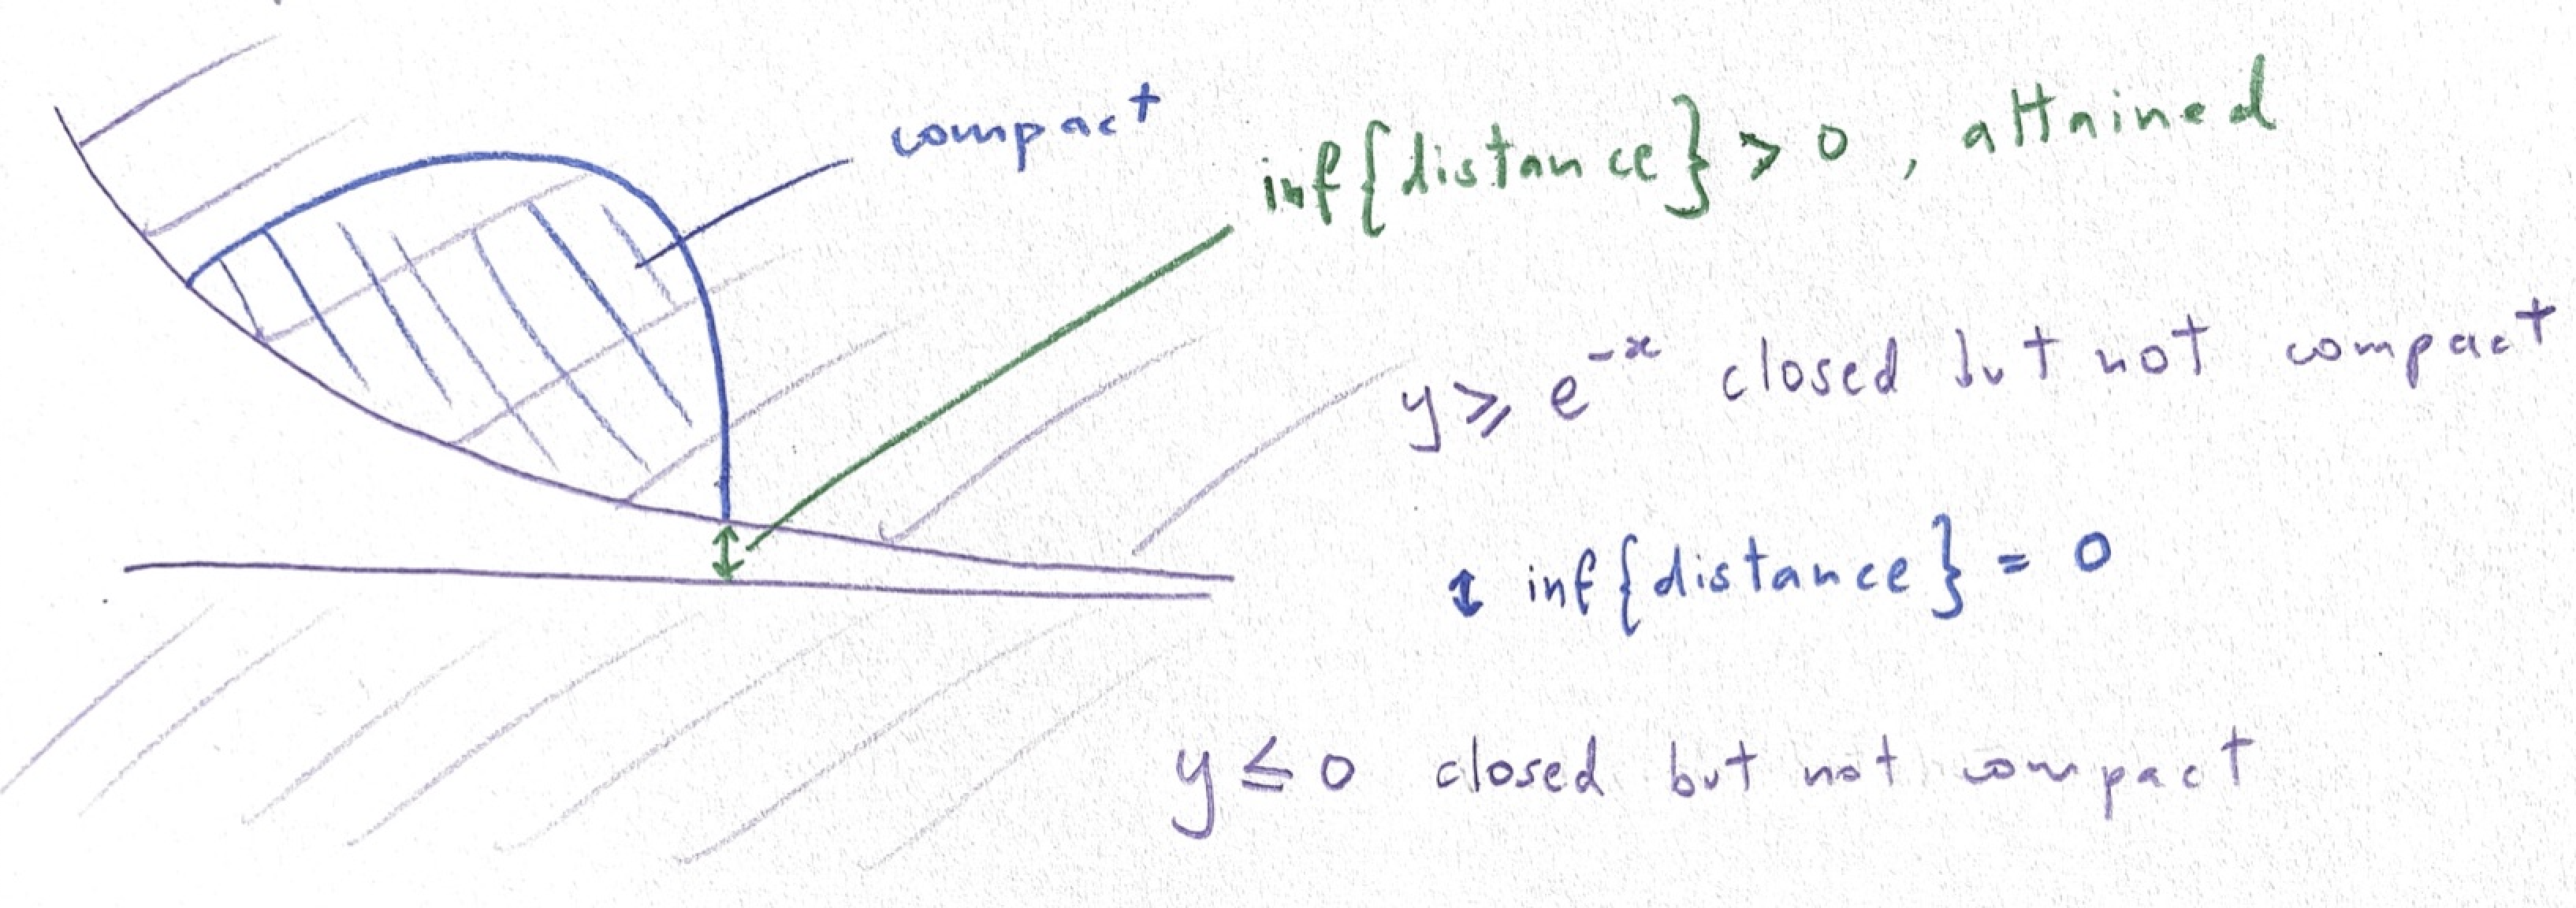 compact
inf{distance} > 0, attained
y ⩾ e^{-x} closed but not compact
↕ inf{distance} = 0
y ≤ 0 closed but not compact